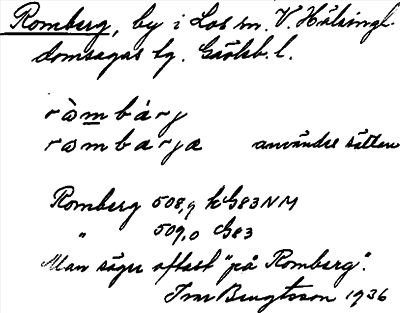 Romberg, by i Los sn. V. Hälsingl.
domsagas tg. Gävleb. l.
ròmbárj
ròmbarja användes sällan
Romberg 508,9 h G83NM
" 509,0 G83
Man säger oftast "på Romberg".
Ivar Bengtsson 1936